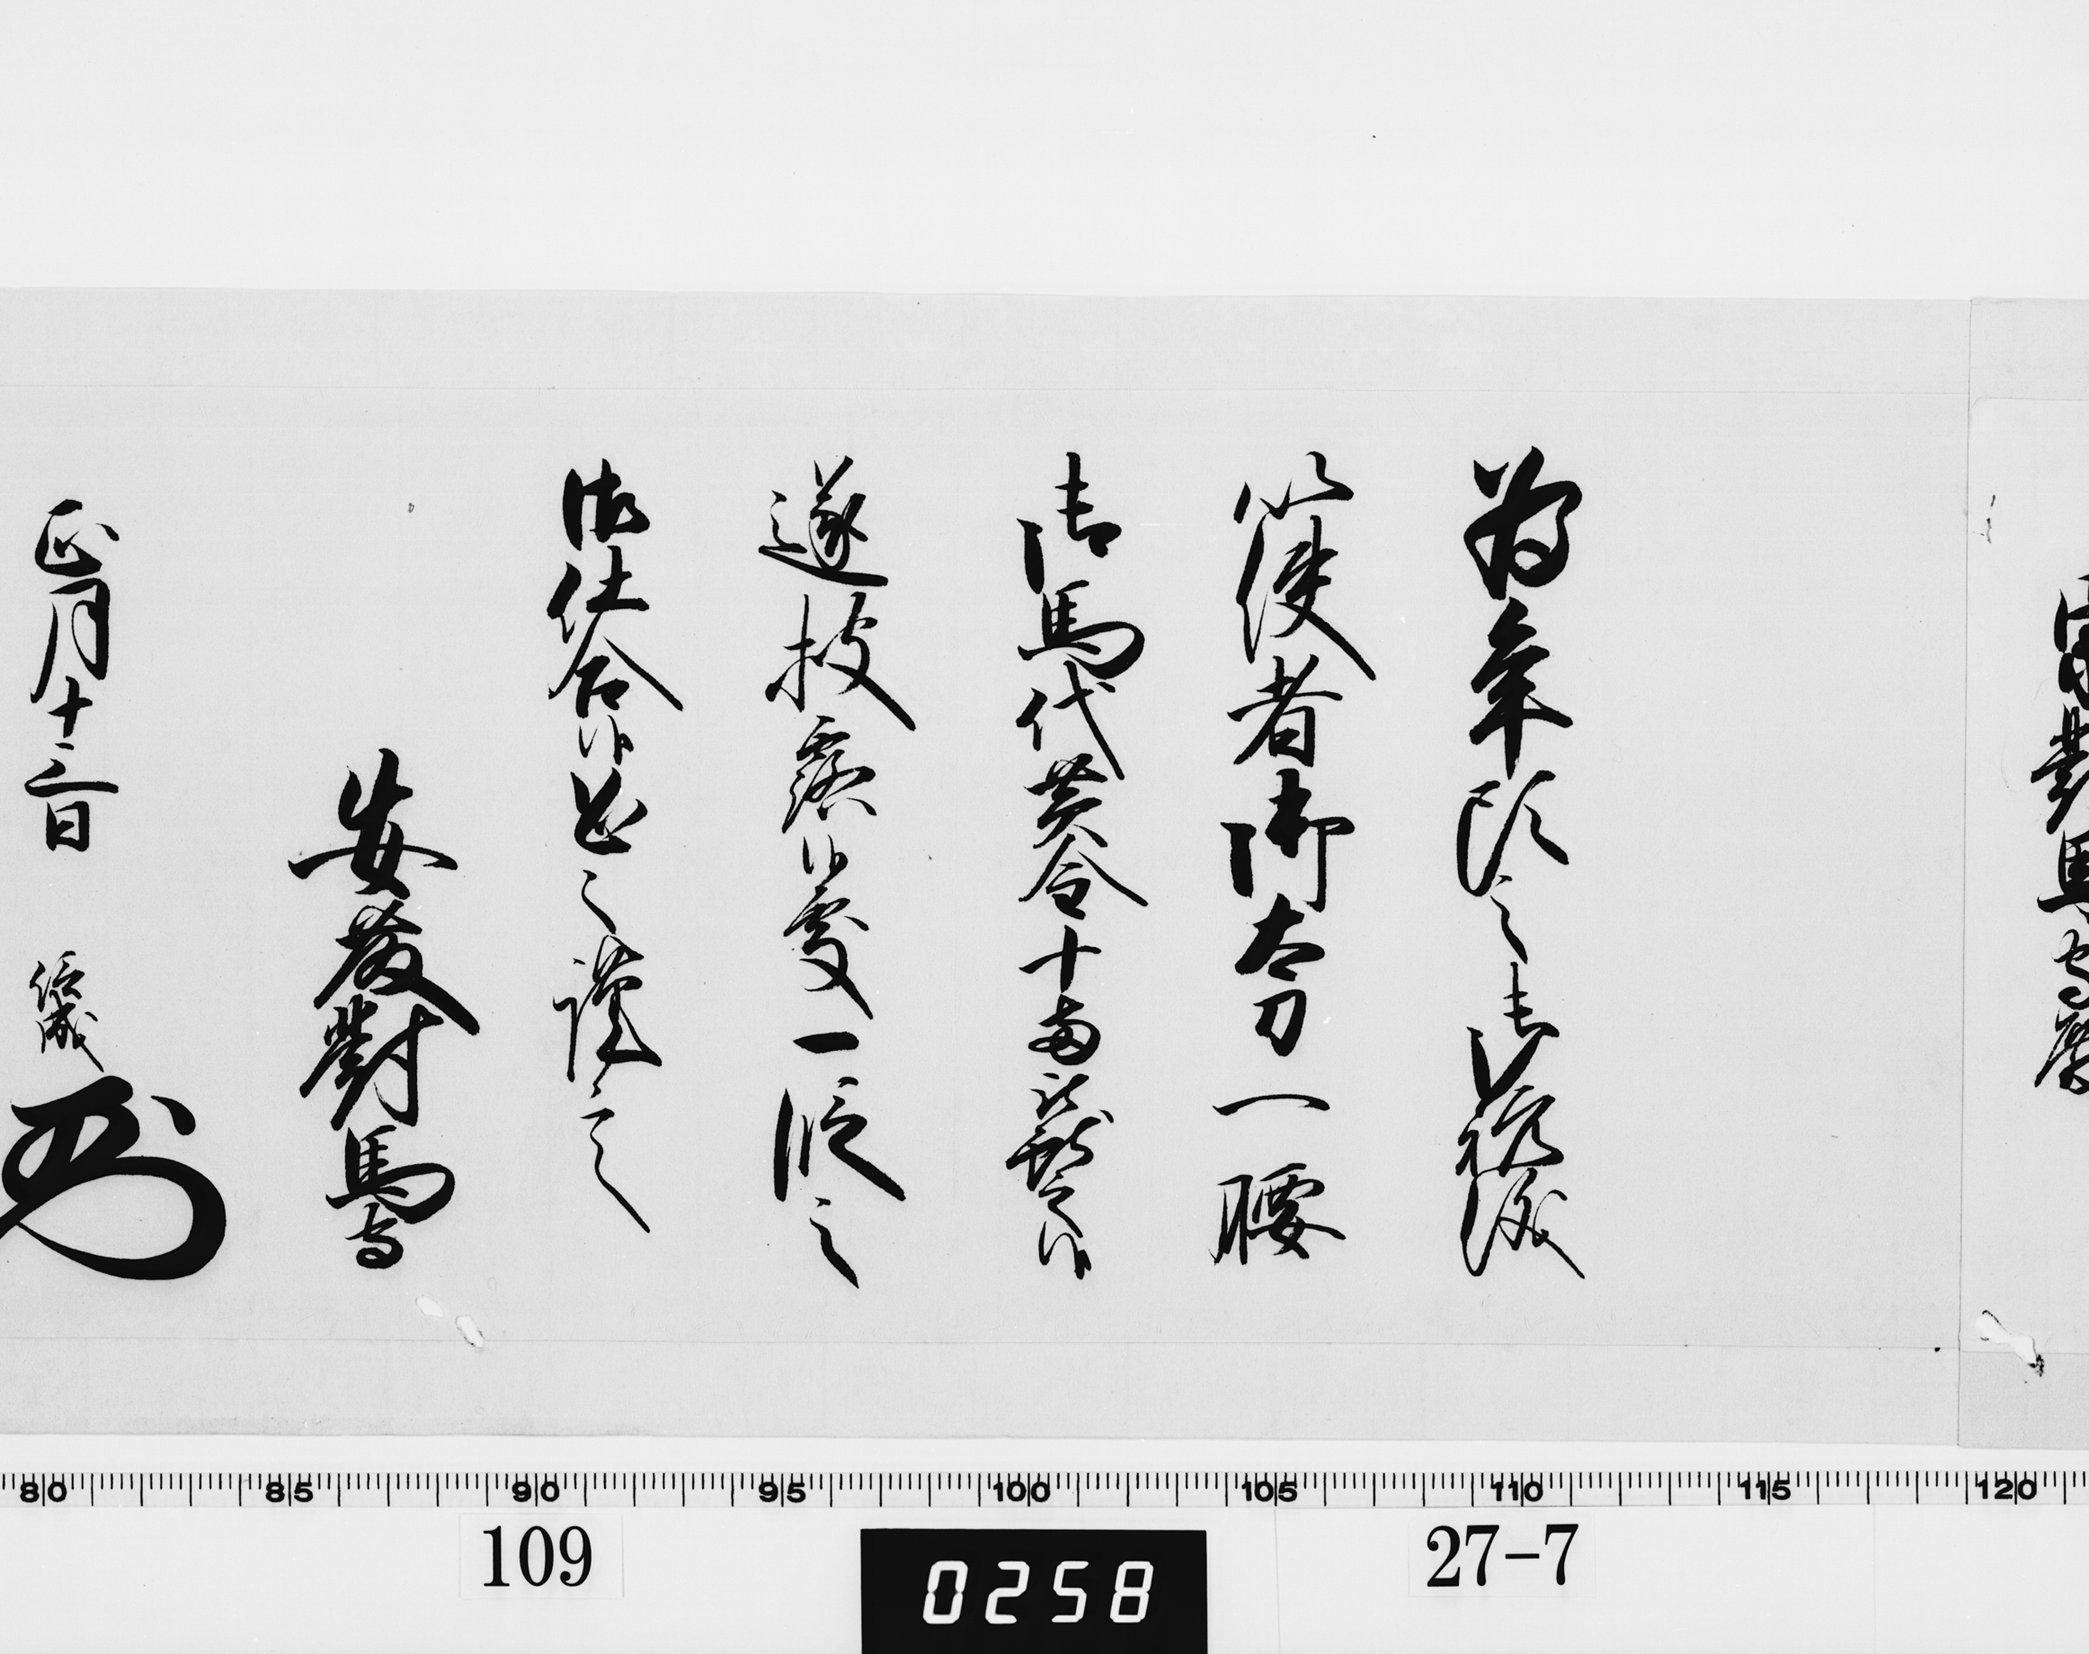 對馬守殿
為年頭之御祝儀
以使者御太刀一腰
御馬代黄金十両被獻之候
遂披露候處一段之
御仕合候恐々謹言
安藤對馬守
正月十三日 信成
80 85 90 95 100 105 110 115 120
109 0258 27-7